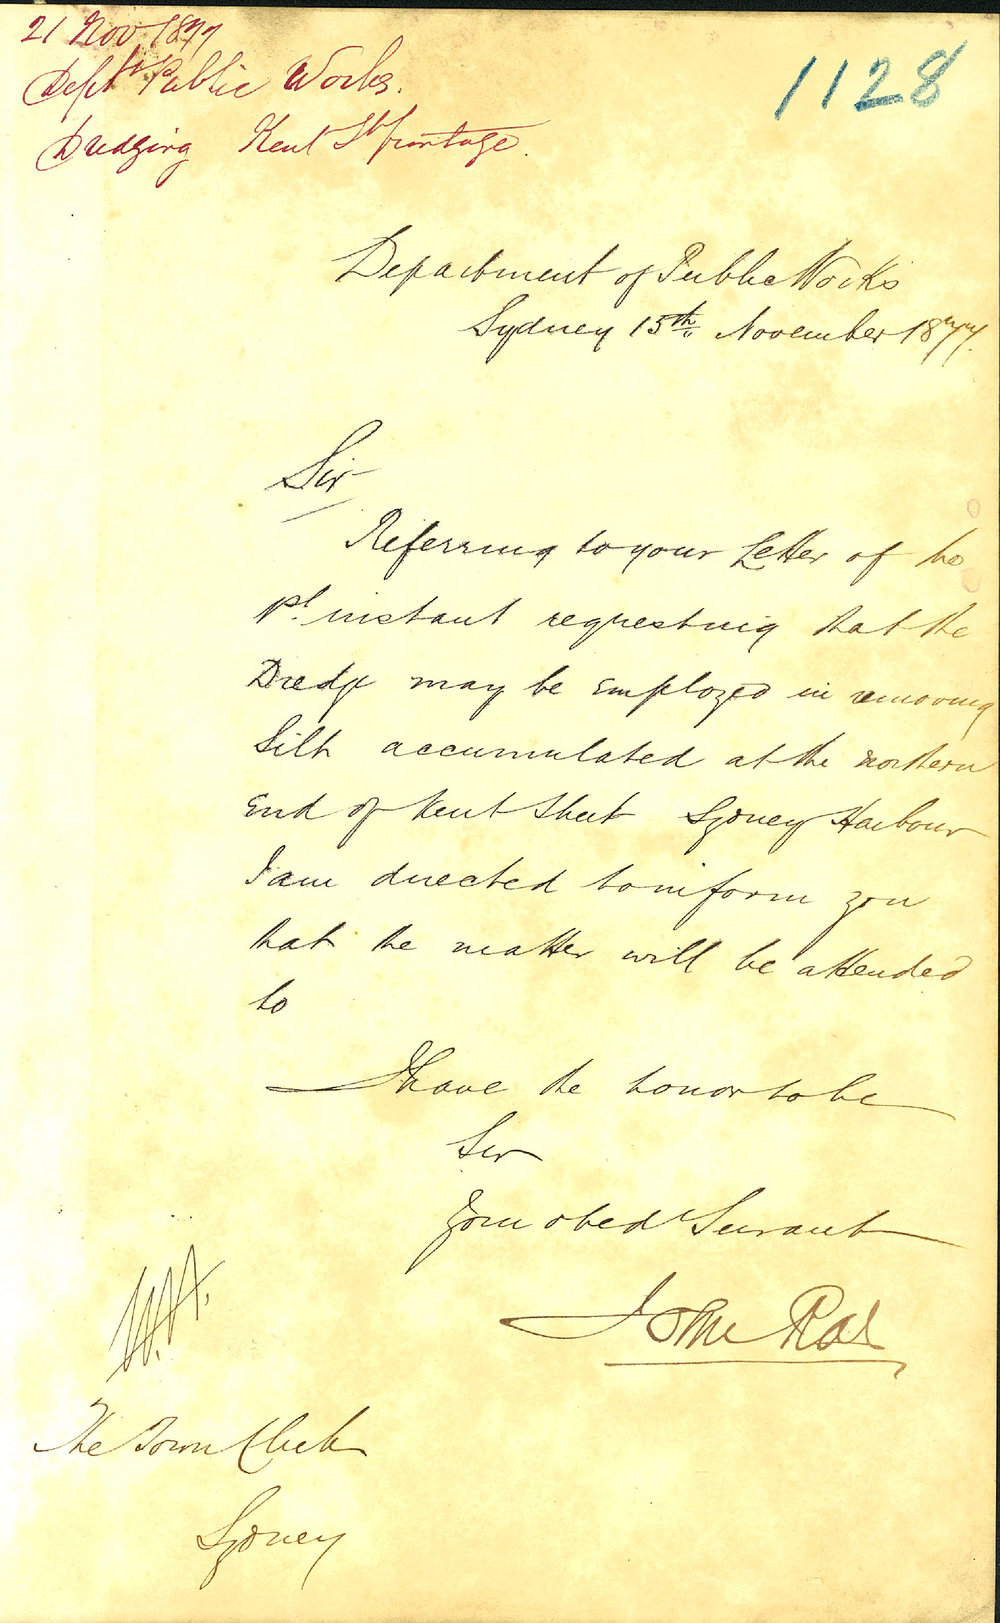 21 Nov 1877
Dept Public Works.
Dredging Kent St frontage.
1128
Department of Public Works
Sydney 15th November 1877.
Sir
Referring to your Letter of the
1st. instant requesting that the
Dredge may be employed in removing
Silt accumulated at the northern
End of Kent Street Sydney Harbour
I am directed to inform you
that the matter will be attended
to
I have the honor to be
Sir
Your obed Servant
John Rae
The Town Clerk
Sydney